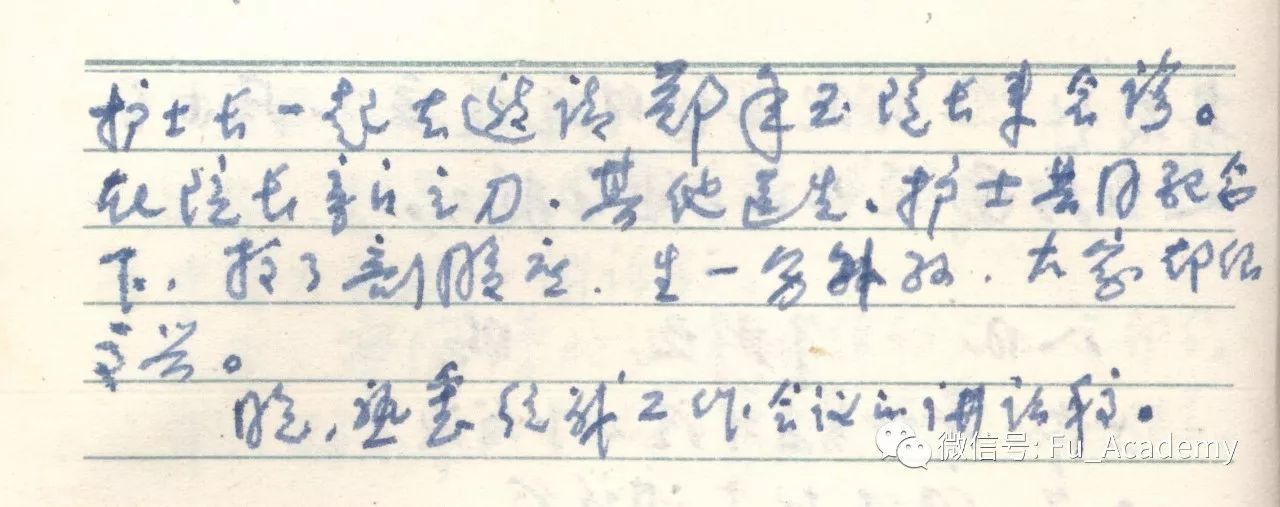 护士长一起去邀请郑年玉院长来会诊。
在院长亲自主刀、其他医生、护士共同配合
下，按了剖腹产．生一男孩．大家都很
高兴。
晚，熟悉统战工作会议的讲话稿。
微信号: Fu_Academy